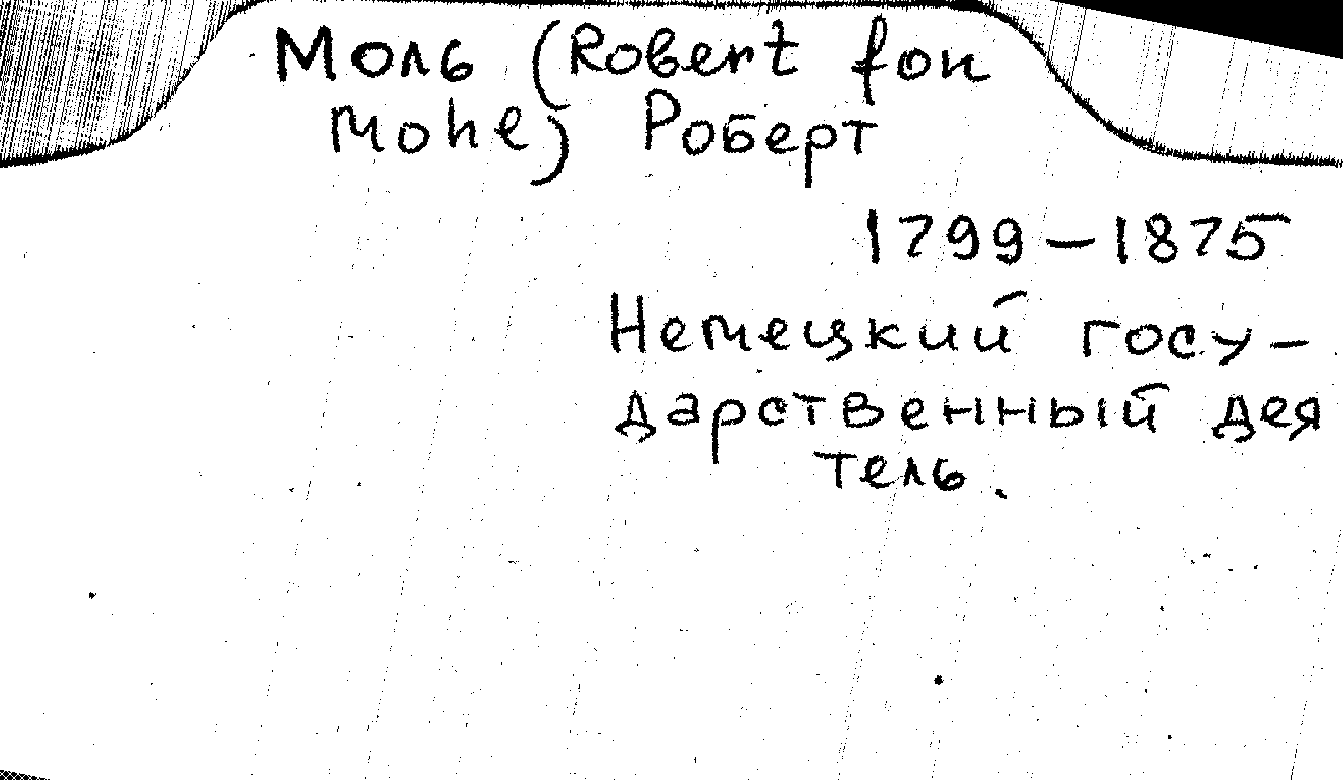 Моль (Robert fon
Mohe) Роберт
1799-1875
Немецкий госу-
дарственный дея
тель.